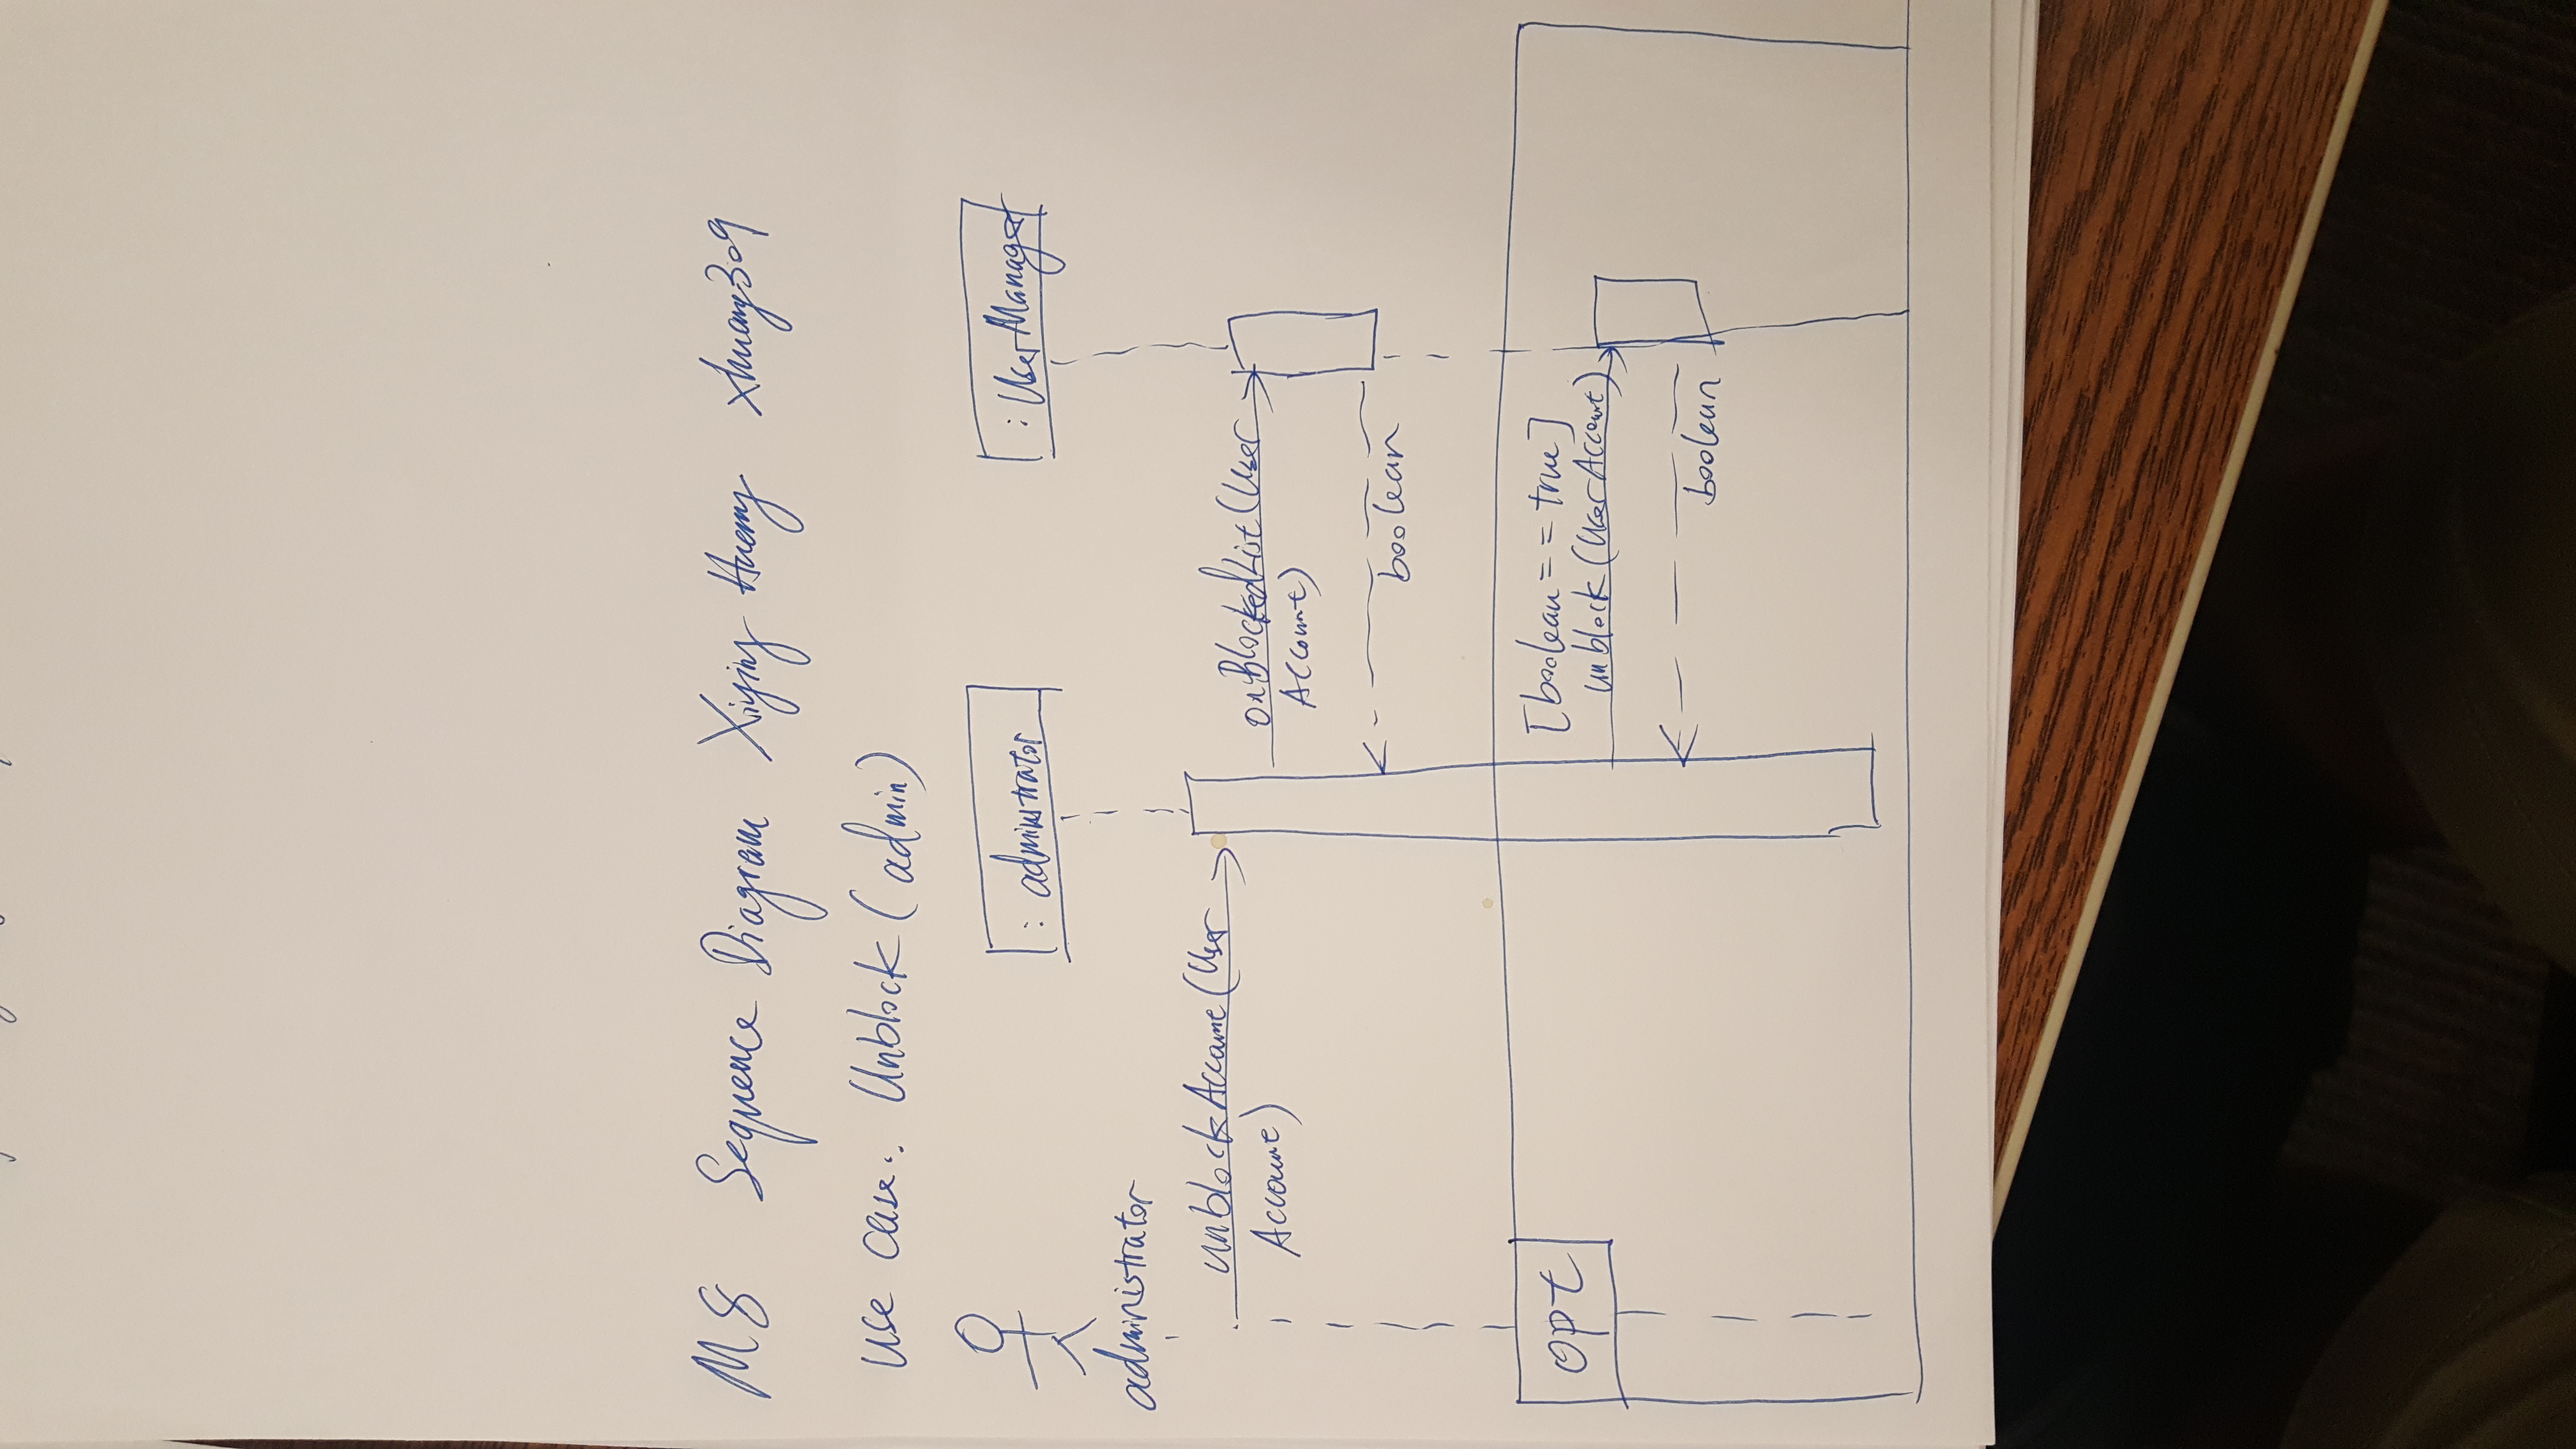 M8 Sequence Diagram Xiying Huang xhuang309
Use case: Unblock (admin)
: adminstrator
: UserManager
administrator
unblockAccount(User
Account)
onBlockedList(User
Account)
boolean
opt
[boolean == true]
unblock(UserAccount)
boolean